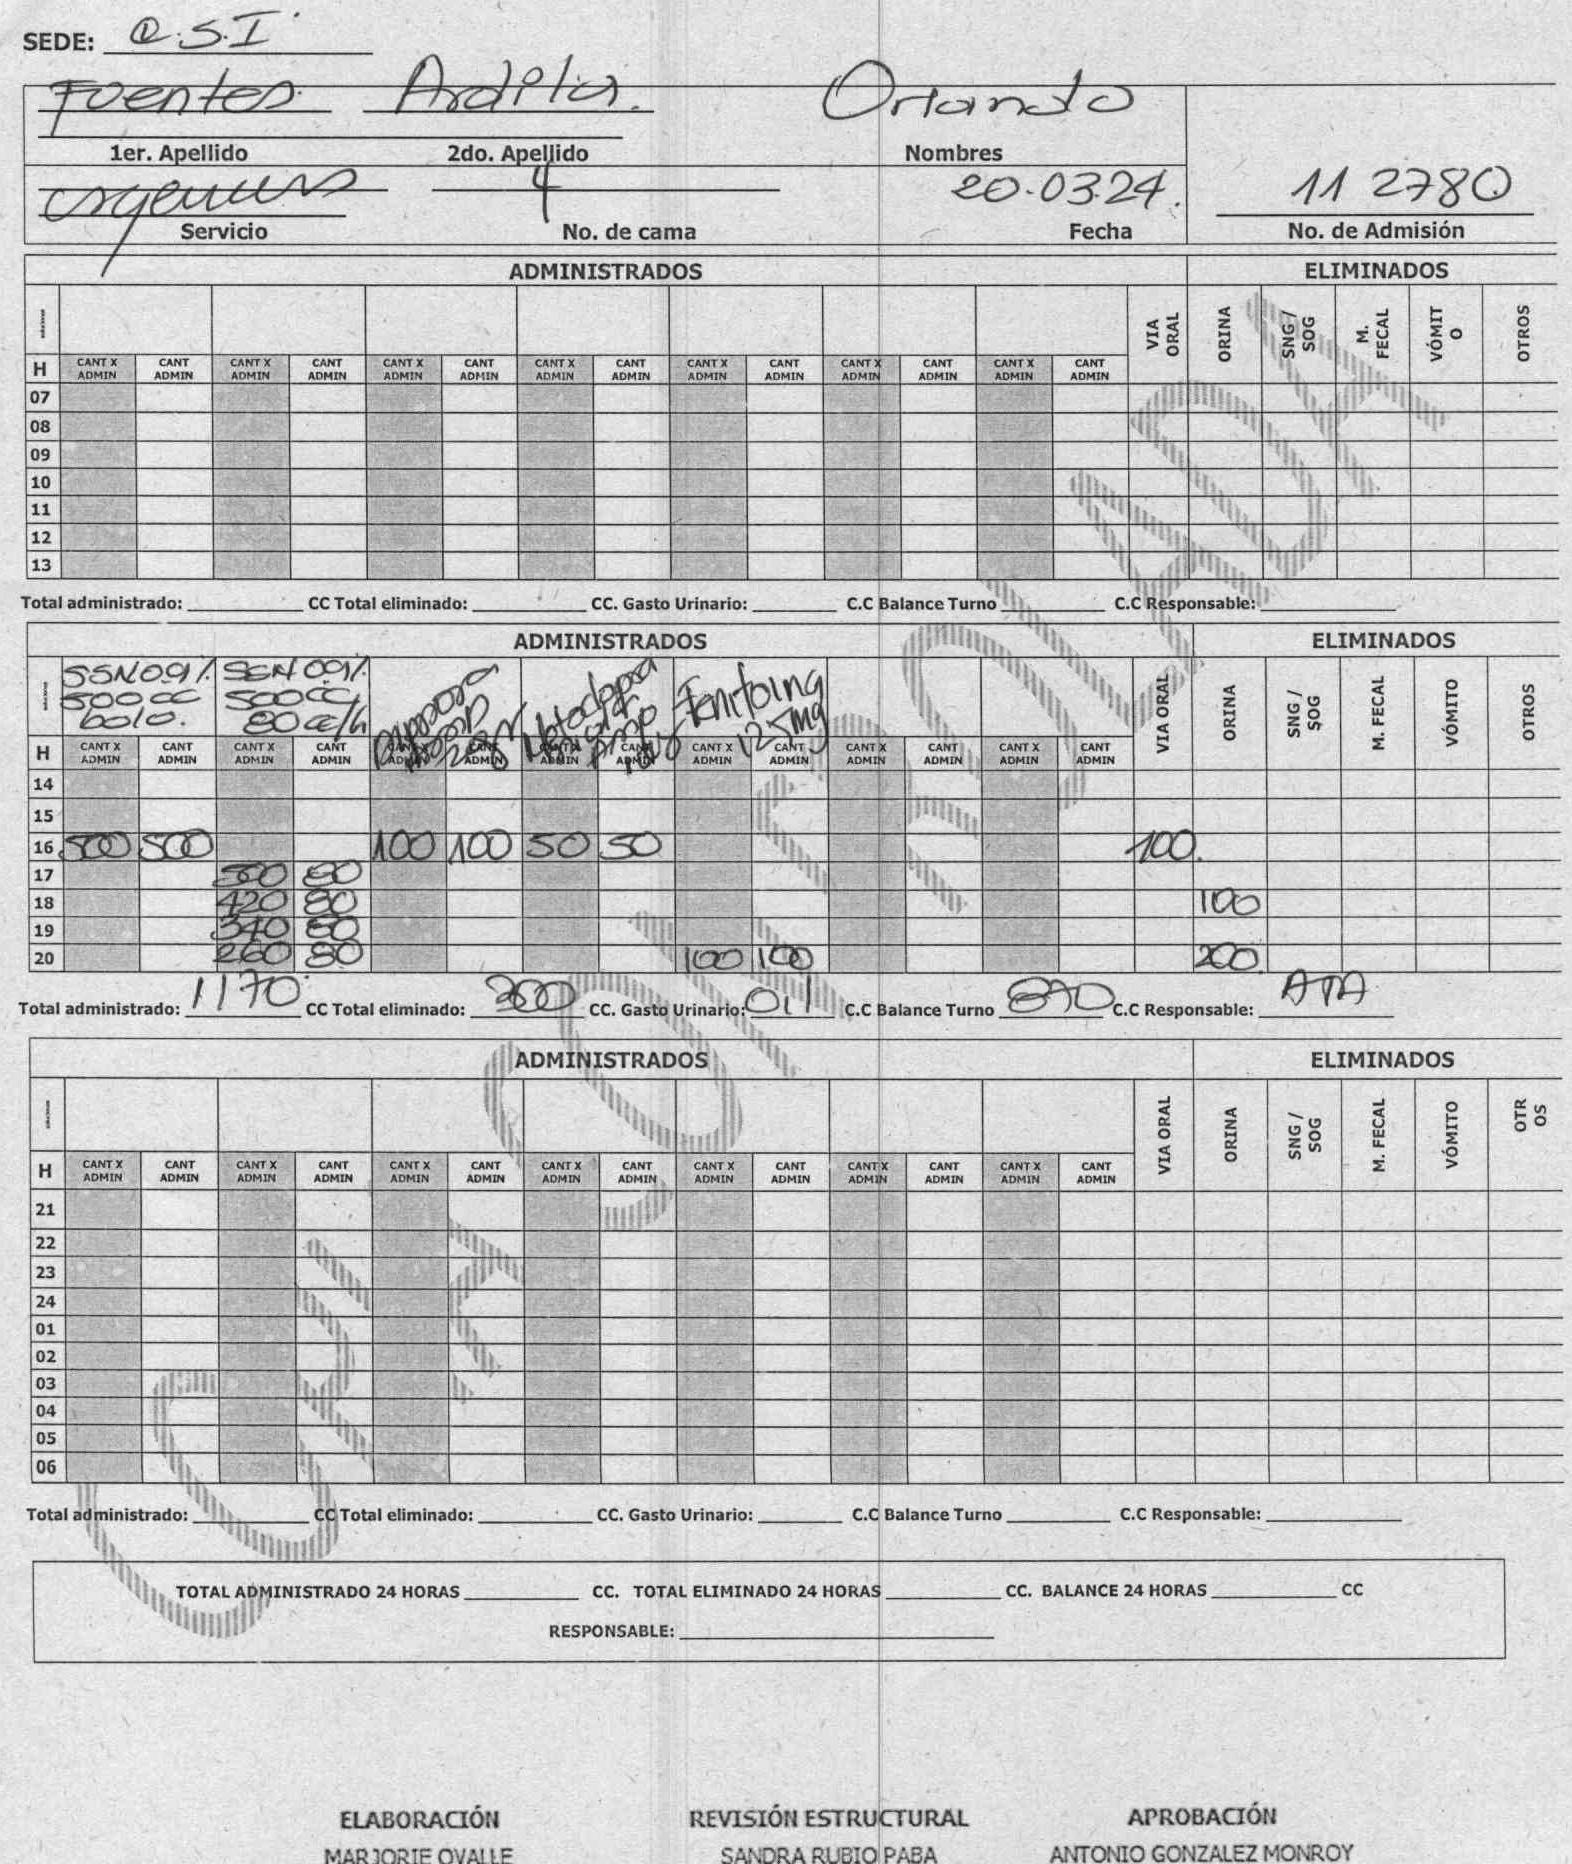 SEDE: C.S.I.
Fuentes Ardila. Orlando
1er. Apellido 2do. Apellido Nombres
urgencias 4 20.03.24. 112780
Servicio No. de cama Fecha No. de Admisión
ADMINISTRADOS ELIMINADOS
VIA ORAL ORINA SNG / SOG M. FECAL VÓMIT O OTROS
H CANT X ADMIN CANT ADMIN CANT X ADMIN CANT ADMIN CANT X ADMIN CANT ADMIN CANT X ADMIN CANT ADMIN CANT X ADMIN CANT ADMIN CANT X ADMIN CANT ADMIN CANT X ADMIN CANT ADMIN
07
08
09
10
11
12
13
Total administrado: CC Total eliminado: CC. Gasto Urinario: C.C Balance Turno C.C Responsable:
ADMINISTRADOS ELIMINADOS
SSN 0.9% 500cc bolo. SSN 0.9% 500cc 80cc/h 2gr AMP Fenitoina 125mg VIA ORAL ORINA SNG / SOG M. FECAL VÓMITO OTROS
H CANT X ADMIN CANT ADMIN CANT X ADMIN CANT ADMIN CANT X ADMIN CANT ADMIN CANT X ADMIN CANT ADMIN CANT X ADMIN CANT ADMIN CANT X ADMIN CANT ADMIN CANT X ADMIN CANT ADMIN
14
15
16 500 500 100 100 50 50 100.
17 500 80
18 420 80 100
19 340 80
20 260 80 100 100 200
Total administrado: 1170 CC Total eliminado: 300 CC. Gasto Urinario: 0,1 C.C Balance Turno 870 C.C Responsable: ATA
ADMINISTRADOS ELIMINADOS
VIA ORAL ORINA SNG / SOG M. FECAL VÓMITO OTR OS
H CANT X ADMIN CANT ADMIN CANT X ADMIN CANT ADMIN CANT X ADMIN CANT ADMIN CANT X ADMIN CANT ADMIN CANT X ADMIN CANT ADMIN CANT X ADMIN CANT ADMIN CANT X ADMIN CANT ADMIN
21
22
23
24
01
02
03
04
05
06
Total administrado: CC Total eliminado: CC. Gasto Urinario: C.C Balance Turno C.C Responsable:
TOTAL ADMINISTRADO 24 HORAS CC. TOTAL ELIMINADO 24 HORAS CC. BALANCE 24 HORAS CC
RESPONSABLE:
ELABORACIÓN REVISIÓN ESTRUCTURAL APROBACIÓN
MARJORIE OVALLE SANDRA RUBIO PABA ANTONIO GONZALEZ MONROY